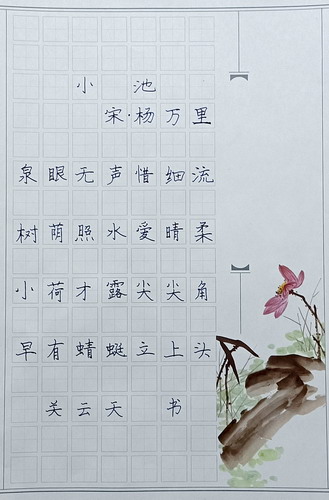 小池
宋·杨万里
泉眼无声惜细流
树荫照水爱晴柔
小荷才露尖尖角
早有蜻蜓立上头
关云天 书